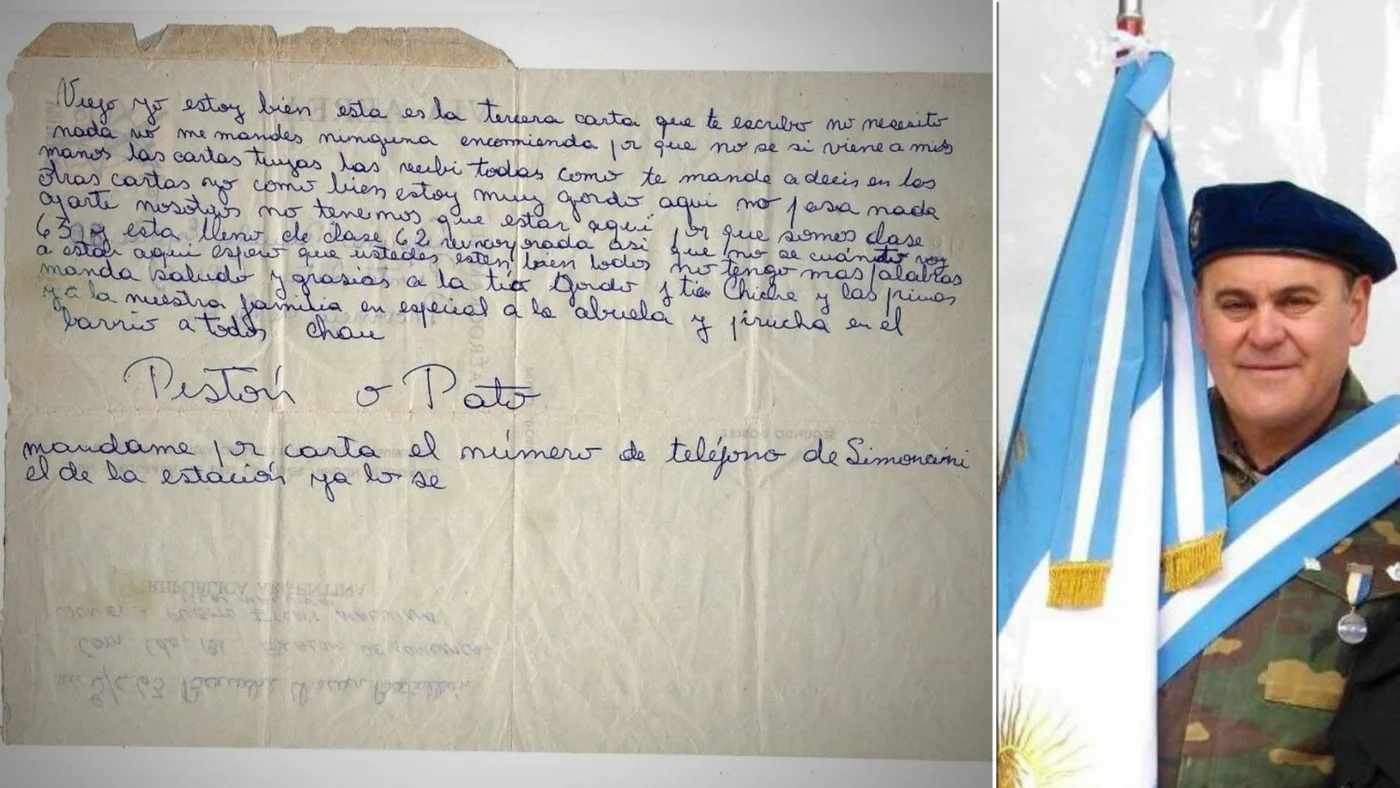 Viejo yo estoy bien esta es la tercera carta que te escribo no necesito
nada no me mandes ninguna encomienda por que no se si viene a mis
manos las cartas tuyas las recibi todas como te mande a decir en las
otras cartas yo como bien estoy muy gordo aqui no pasa nada
aparte nosotros no tenemos que estar aqui por que somos clase
63 y esta lleno de clase 62 reincorporada asi que no se cuánto voy
a estar aqui espero que ustedes esten bien todos no tengo mas palabras
manda saludo y grasias a la tia Gorda y tia Chiche y las primas
y a la nuestra familia en especial a la abuela y pirucha en el
barrio a todos chau
Pistón o Pato
mandame por carta el número de teléfono de Simoncini
el de la estación ya lo se
REPÚBLICA ARGENTINA